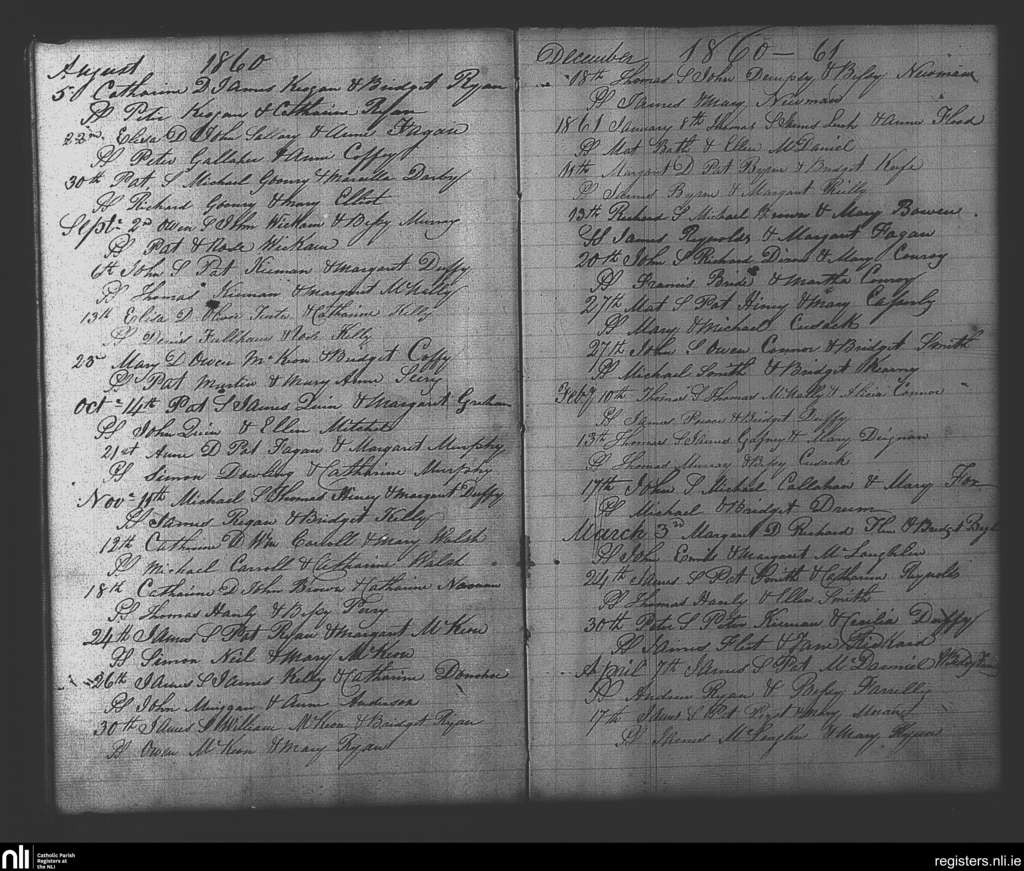 August 1860
5th Catharine D James Keegan & Bridget Ryan
Sp Peter Keegan & Catharine Ryan
22nd Eliza D John & Anne Fagan
Sp Peter Gallaher & Ann Coffy
30th Pat S Michael Goonry & Marcella Darby
Sp Richard Goonry & Mary Elliot
Sept 2d Owen S John Wickam & Bessy Murray
Sp Pat & Rose Wickam
6th John S Pat Kiernan & Margaret Duffy
Sp Thomas Kiernan & Margaret McNally
13th Eliza D & Catharine Kelly
Sp Denis & Rose Kelly
23rd Mary D Owen McKeon & Bridget Coffy
Sp Pat Martin & Mary Anne Seery
Oct 14th Pat S James Quin & Margaret Graham
Sp John Quin & Ellen Mitchel
21st Anne D Pat Fagan & Margaret Murphy
Sp Simon Dowling & Catharine Murphy
Nov 11th Michael S Thomas Hiney & Margaret Duffy
Sp James Regan & Bridget Kelly
12th Catharine D Wm Carroll & Mary Walsh
Sp Michael Carroll & Catharine Walsh
18th Catharine D John Brown & Catharine
Sp Thomas Hanly & Bessy
24th James S Pat Ryan & Margaret McKeon
Sp Simon Neil & Mary McKeon
26th James S James Kelly & Catharine Donohoe
Sp John Muggan & Ann Anderson
30th James S William McKeon & Bridget Ryan
Sp Owen McKeon & Mary Ryan
December 1860-61
18th Thomas S John Dempsy & Bessy Newman
Sp James & Mary Newman
1861 January 8th Thomas S James & Anne Flood
Sp Mat & Ellen McDaniel
11th Margaret D Pat Byrne & Bridget Keefe
Sp James Byrne & Margaret Reilly
13th Richard S Michael Brown & Mary Bowen
Sp James Reynolds & Margaret Fagan
20th John S Richard Dixon & Mary Conroy
Sp Francis & Martha Conroy
27th Mat S Pat Hiney & Mary Casserly
Sp Mary & Michael Cusack
27th John S Owen Connor & Bridget Smith
Sp Michael Smith & Bridget Kearny
Feby 10th Thomas S Thomas McNally & Alicia Connor
Sp James & Bridget Duffy
13th Thomas S James Gafney & Mary Deignan
Sp Thomas Murray & Bessy Cusack
17th John S Michael Callahan & Mary Fox
Sp Michael & Bridget Drum
March 3rd Margaret D Richard & Bridget
Sp John & Margaret McLoughlin
24th James S Pat Smith & Catharine Reynolds
Sp Thomas Hanly & Ellen Smith
30th Peter S Peter Kiernan & Cecilia Duffy
Sp James & Jane
April 7th James S Pat McDaniel
Sp Andrew Ryan & Bessy Farrelly
17th James S Pat & Mary
Sp James McLoughlin & Mary Flynn
nli Catholic Parish
Registers at
the NLI
registers.nli.ie